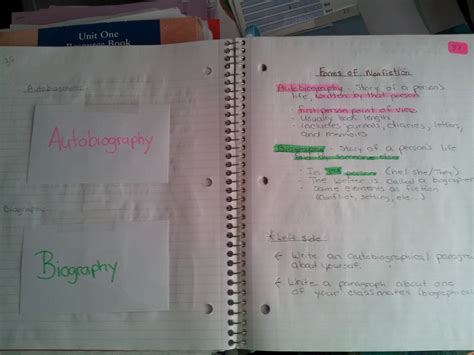 Unit One
Resource Book
Autobiography
Autobiography
Biography
Biography
Forms of Nonfiction
Autobiography - Story of a person's
life, written by that person
- first person point of view
- Usually book length
- includes journals, diaries, letters,
and memoirs
Biography - Story of a person's
life by someone else
- In 3rd person (he/she/they)
- The writer is called a biographer
- Same elements as fiction
(conflict, setting, etc..)
Left Side
Write an autobiographical paragraph
about yourself.
Write a paragraph about one
of your classmates (biographical)